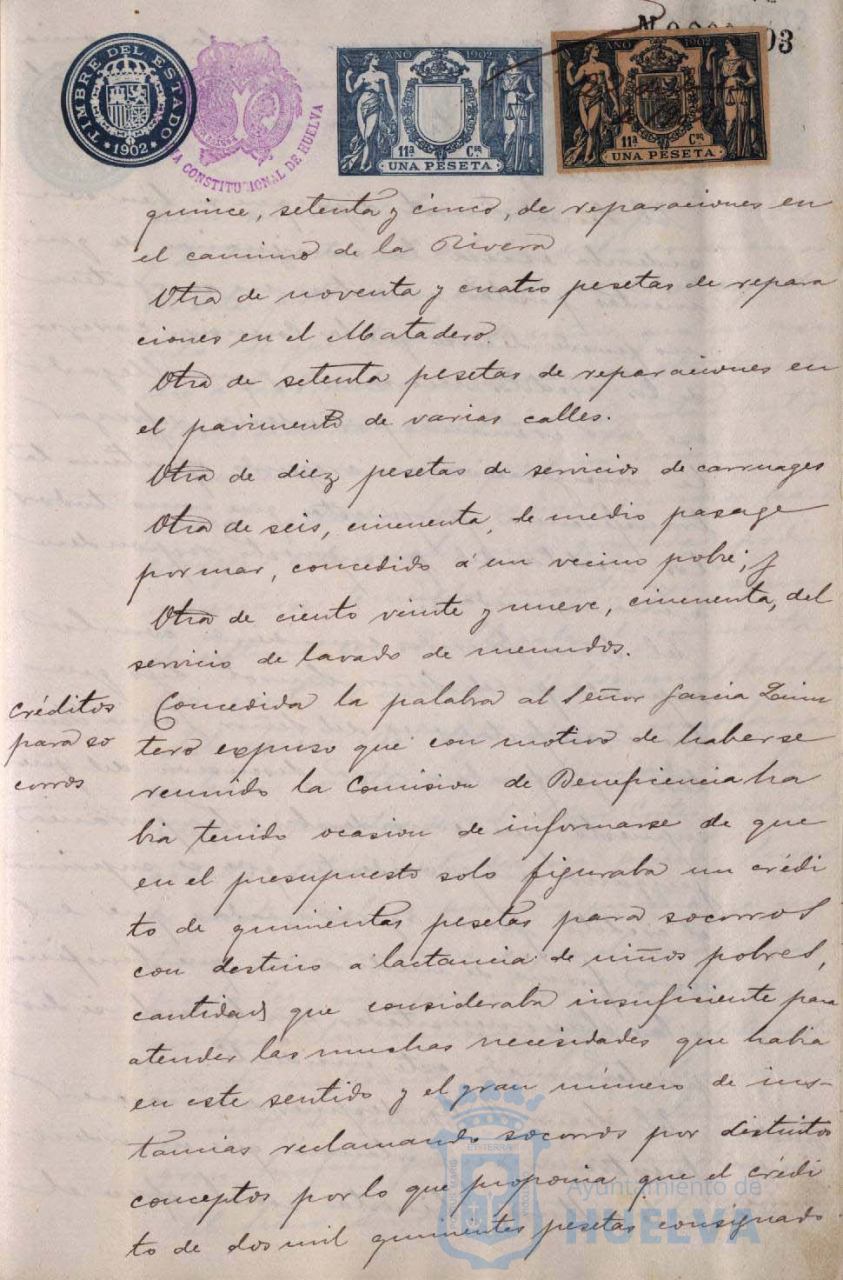 TIMBRE DEL ESTADO
*1902*
CONSTITUCIONAL DE HUELVA
AÑO 1902
11ª Cse
UNA PESETA
AÑO 1902
11ª Cse
UNA PESETA
93
quince, setenta y cinco, de reparaciones en
el camino de la Rivera
Otra de noventa y cuatro pesetas de repara
ciones en el Matadero.
Otra de setenta pesetas de reparaciones en
el pavimento de varias calles.
Otra de diez pesetas de servicios de carruages
Otra de seis, cincuenta, de medio pasage
por mar, concedido á un vecino pobre; y
Otra de ciento veinte y nueve, cincuenta, del
servicio de lavado de menudos.
créditos
para so
corros
Concedida la palabra al Señor Garcia
tero expuso que con motivo de haberse
reunido la Comision de Beneficencia ha
bia tenido ocasion de informarse de que
en el presupuesto solo figuraba un crédi
to de quinientas pesetas para socorros
con destino á lactancia de niños pobres,
cantidad que consideraba insuficiente para
atender las muchas necesidades que habia
en este sentido y el gran número de ins-
tancias reclamando socorros por distintos
conceptos por lo que proponia que el crédi
to de dos mil quinientas pesetas consignado
Ayuntamiento de
HUELVA